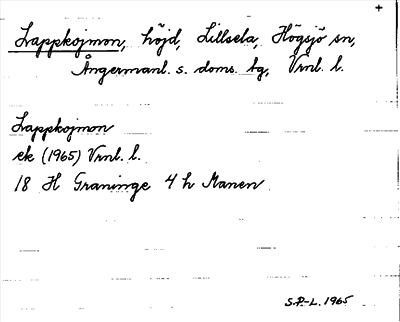 +
Lappkojmon, höjd, Lillsela, Högsjö sn,
Ångermanl. s. doms. tg, Vrnl. l.
Lappkojmon
ek (1965) Vrnl. l.
18 H Graninge 4 h Manen
S.P.-L. 1965